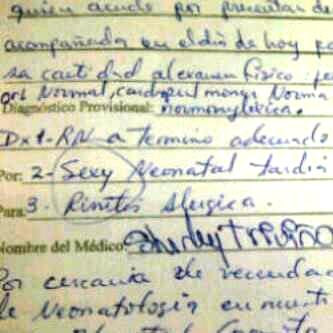 quien acude por presentar de
acompañada en el día de hoy
sa cantidad al examen físico
ORL Normal, cardiopulmonar Norma
Diagnóstico Provisional: normohidrica.
Dx 1- RN a termino adecuado
Por: 2- Sexy Neonatal tardia
Para: 3- Rinitis Alergica.
Nombre del Médico: Shirley
Por cercania de
de Neonatología en nuestr